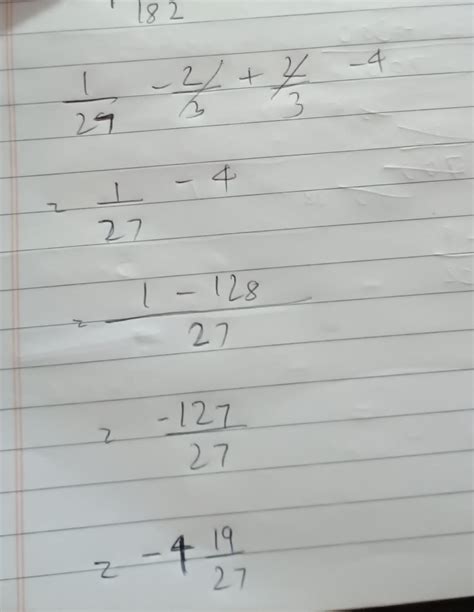 182
1/29 - 2/3 + 2/3 - 4
= 1/27 - 4
= 1 - 128/27
= -127/27
= -4 19/27